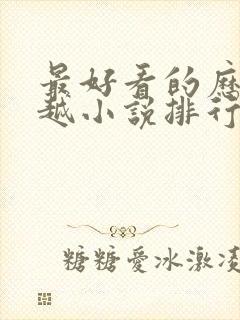 最好看的
越小說排行
糖糖愛冰激凌